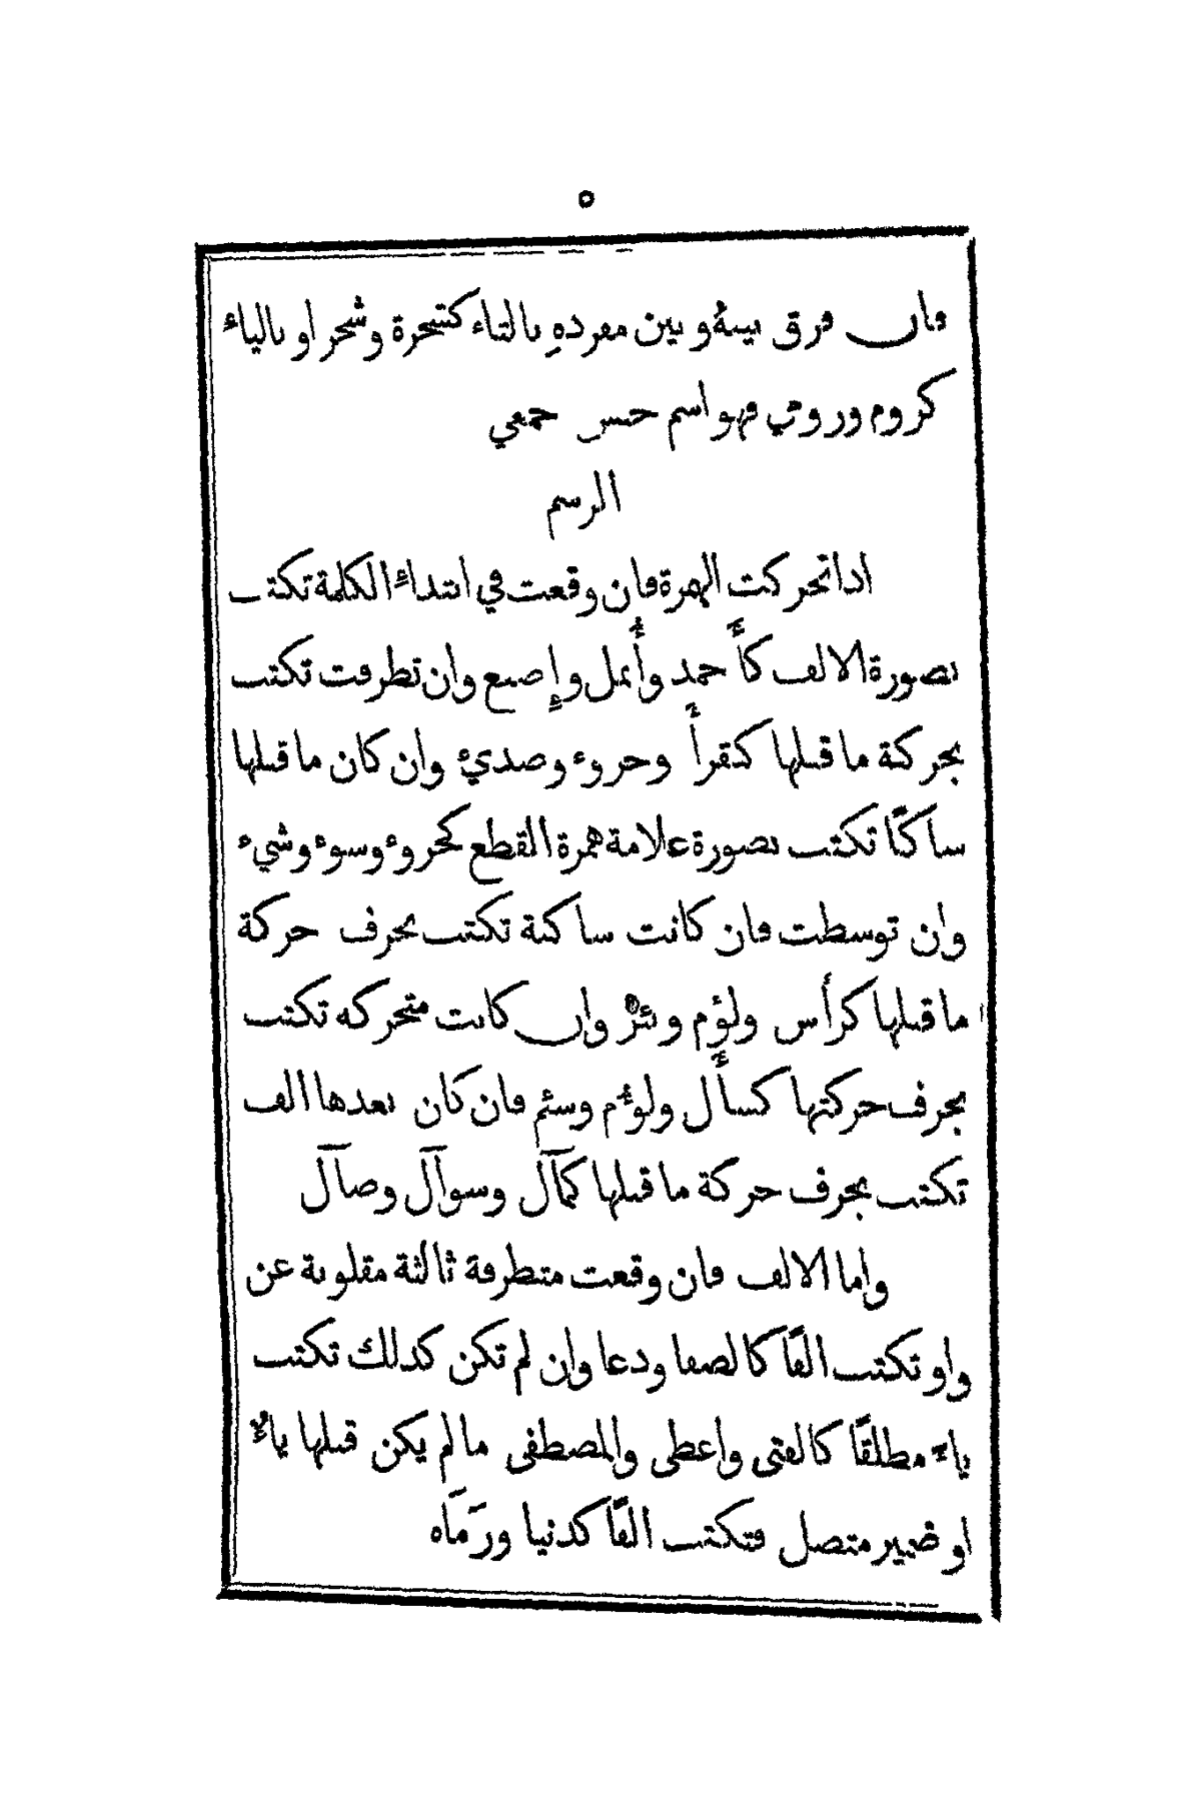 ٥
فان فرق بينهُ وبين مفردهِ بالتاء كشجرة وشجر او بالياء
كروم ورومي فهو اسم جنس جمعي
الرسم
اذا تحركت الهمزة فان وقعت في ابتداءِ الكلمة تكتب
بصورة الالف كأَحمد وأُبمل وإِصبع وان تطرفت تكتب
بحركة ما قبلها كتقرأَ وجروء وصديءُ وان كان ما قبلها
ساكنًا تكتب بصورة علامة همزة القطع كجروء وسوء وشيء
وان توسطت فان كانت ساكنة تكتب بحرف حركة
ما قبلها كرأس ولؤم وبئرٌ وان كانت متحركه تكتب
بحرف حركتها كسأَل ولؤُم وسئم فان كان بعدها الف
تكتب بحرف حركة ما قبلها كمآل وسوآل وصآل
واما الالف فان وقعت متطرفة ثالثة مقلوبة عن
واو تكتب الفًا كالصفا ودعا وان لم تكن كذلك تكتب
ياءً مطلقًا كالفتى واعطى والمصطفى ما لم يكن قبلها ياءٌ
او ضمير متصل فتكتب الفًا كدنيا ورَمَاه